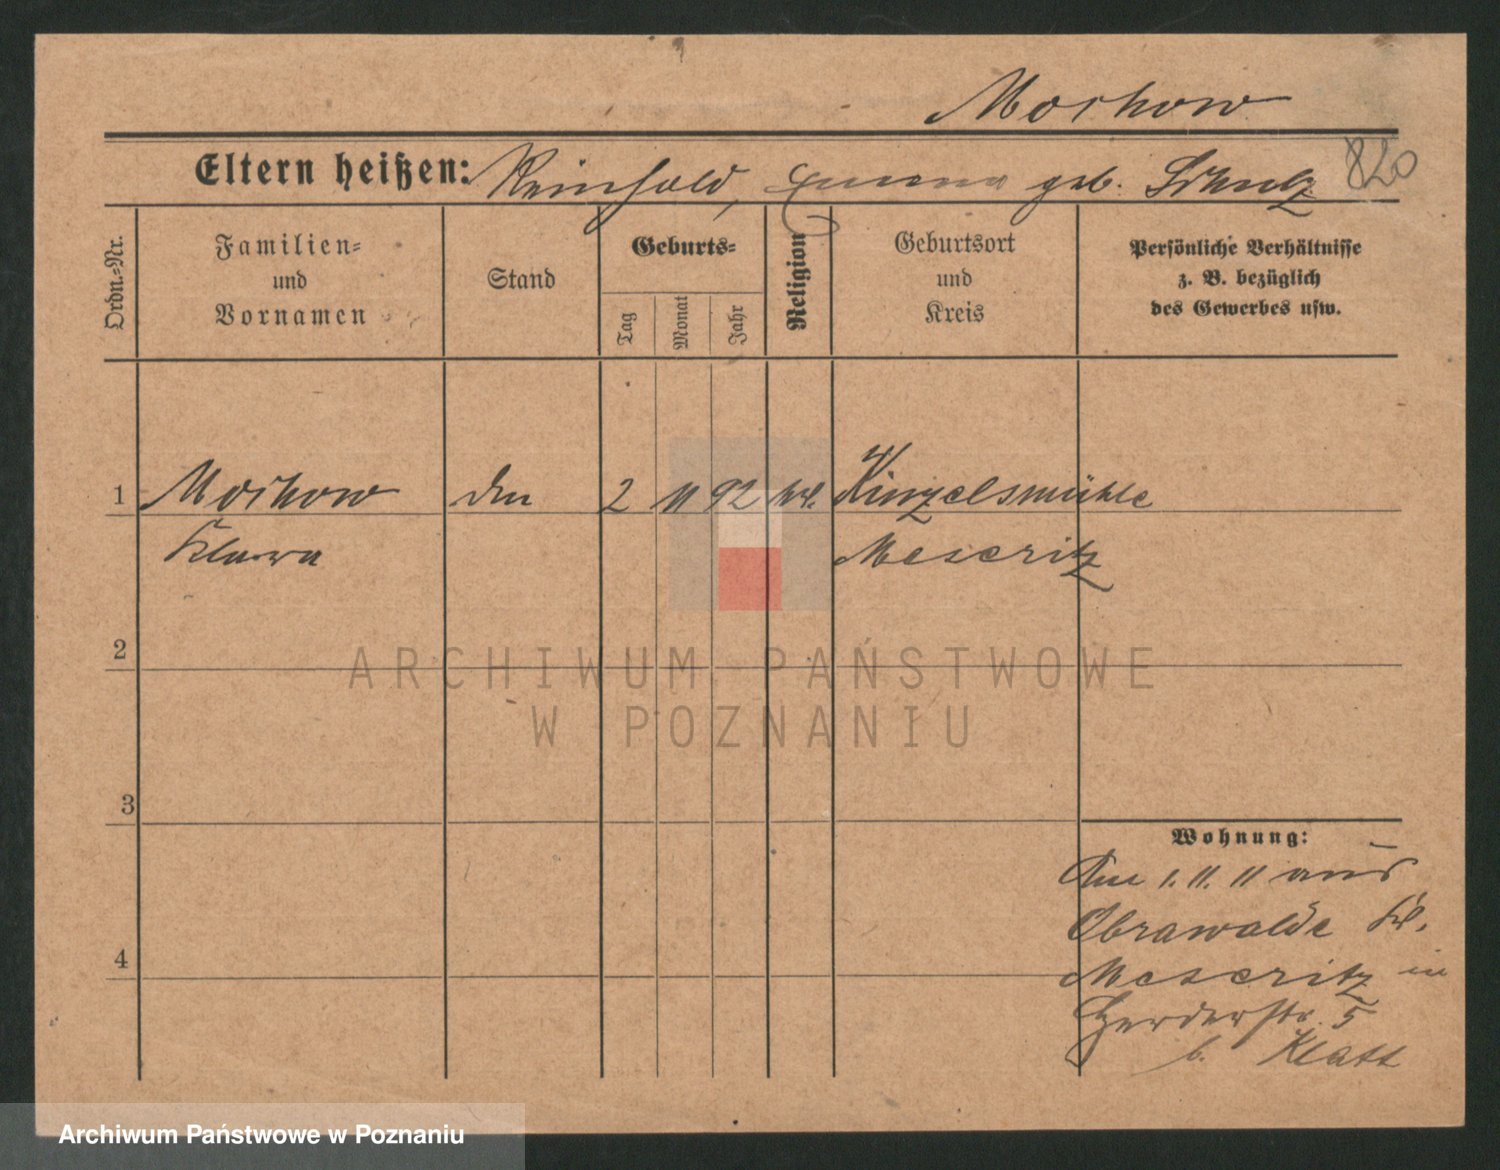 Moschow
820
Eltern heißen: Reinhold, Emma geb. Schulz
Ordn.=Nr.
Familien=
und
Vornamen
Stand
Geburts=
Tag
Monat
Jahr
Religion
Geburtsort
und
Kreis
Persönliche Verhältnisse
z. B. bezüglich
des Gewerbes usw.
1 Moschow 2 11 92 Kinzelsmühle
Klara Meseritz
2
3
4
Wohnung:
Am 1. 11. 11 aus
Obrawalde Kr.
Meseritz in
Herderstr. 5
b. Klatt
ARCHIWUM PAŃSTWOWE
W POZNANIU
Archiwum Państwowe w Poznaniu